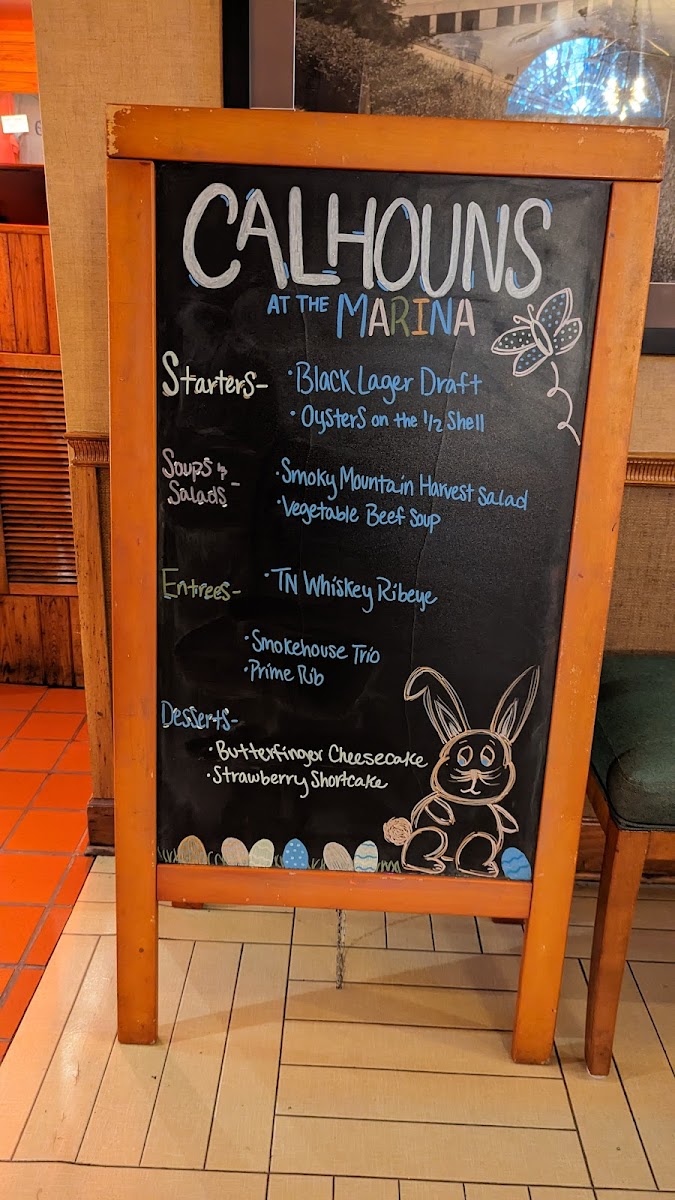 CALHOUNS
AT THE MARINA
Starters- • Black Lager Draft
• Oysters on the 1/2 Shell
Soups & • Smoky Mountain Harvest Salad
Salads - • Vegetable Beef Soup
Entrees- • TN Whiskey Ribeye
• Smokehouse Trio
• Prime Rib
Desserts-
• Butterfinger Cheesecake
• Strawberry Shortcake